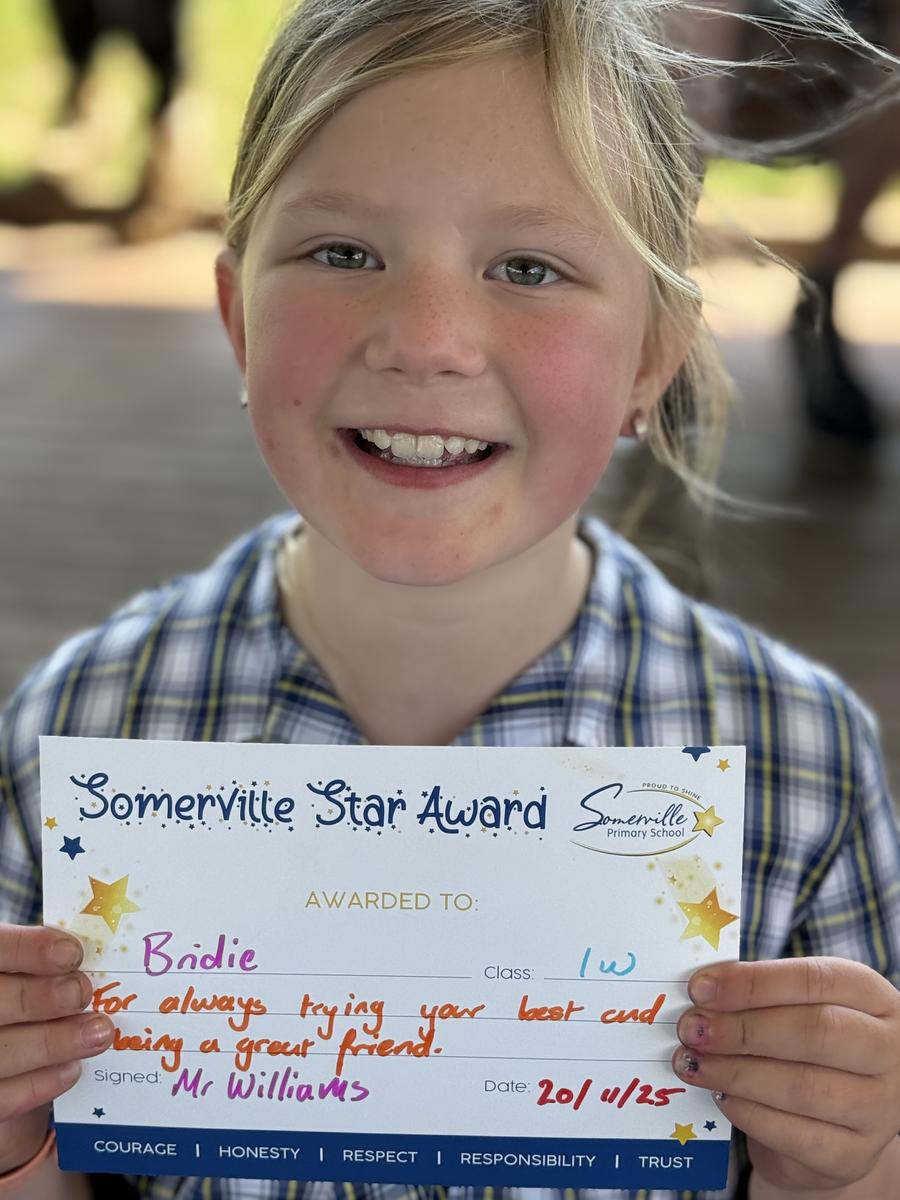 Somerville Star Award
PROUD TO SHINE
Somerville
Primary School
AWARDED TO:
Bridie Class: 1W
For always trying your best and
being a great friend.
Signed: Mr Williams Date: 20/11/25
COURAGE | HONESTY | RESPECT | RESPONSIBILITY | TRUST